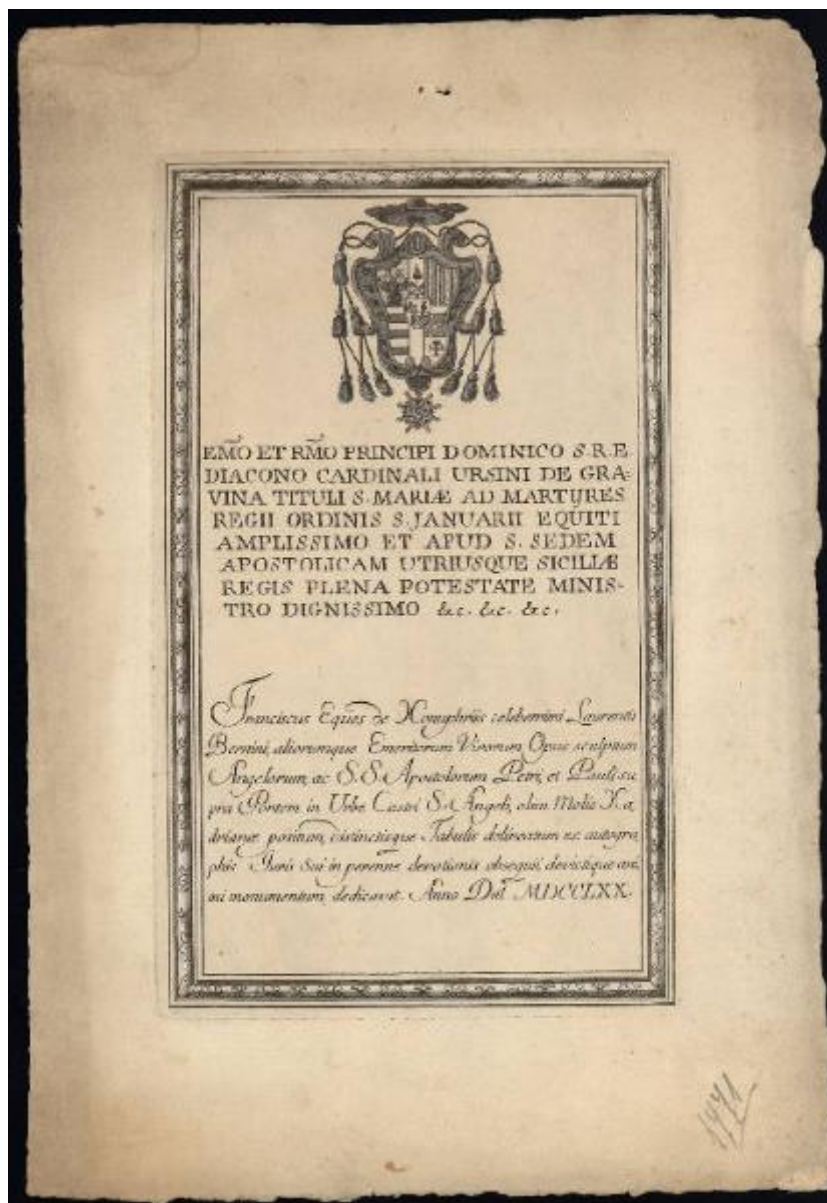 EM̃O ET RM̃O PRINCIPI DOMINICO S.R.E
DIACONO CARDINALI URSINI DE GRA-
VINA TITULI S. MARIÆ AD MARTYRES
REGII ORDINIS S. JANUARII EQUITI
AMPLISSIMO ET APUD S. SEDEM
APOSTOLICAM UTRIUSQUE SICILIÆ
REGIS PLENA POTESTATE MINIS-
TRO DIGNISSIMO &c. &c. &c.
Franciscus Eques de celeberrimi Laurentii
Bernini, aliorumque Emeritorum Virorum Opus sculptum
Angelorum, ac S.S. Apostolorum Petri, et Pauli su
pra Pontem in Urbe Castri S. Angeli, olim Molis Ha
drianæ positum, distinctisque Tabulis delineatum ex autogra
phis Juris Sui in perenne devotionis obsequii, devictique ani
mi monumentum, dedicavit Anno MDCCLXX.
1771